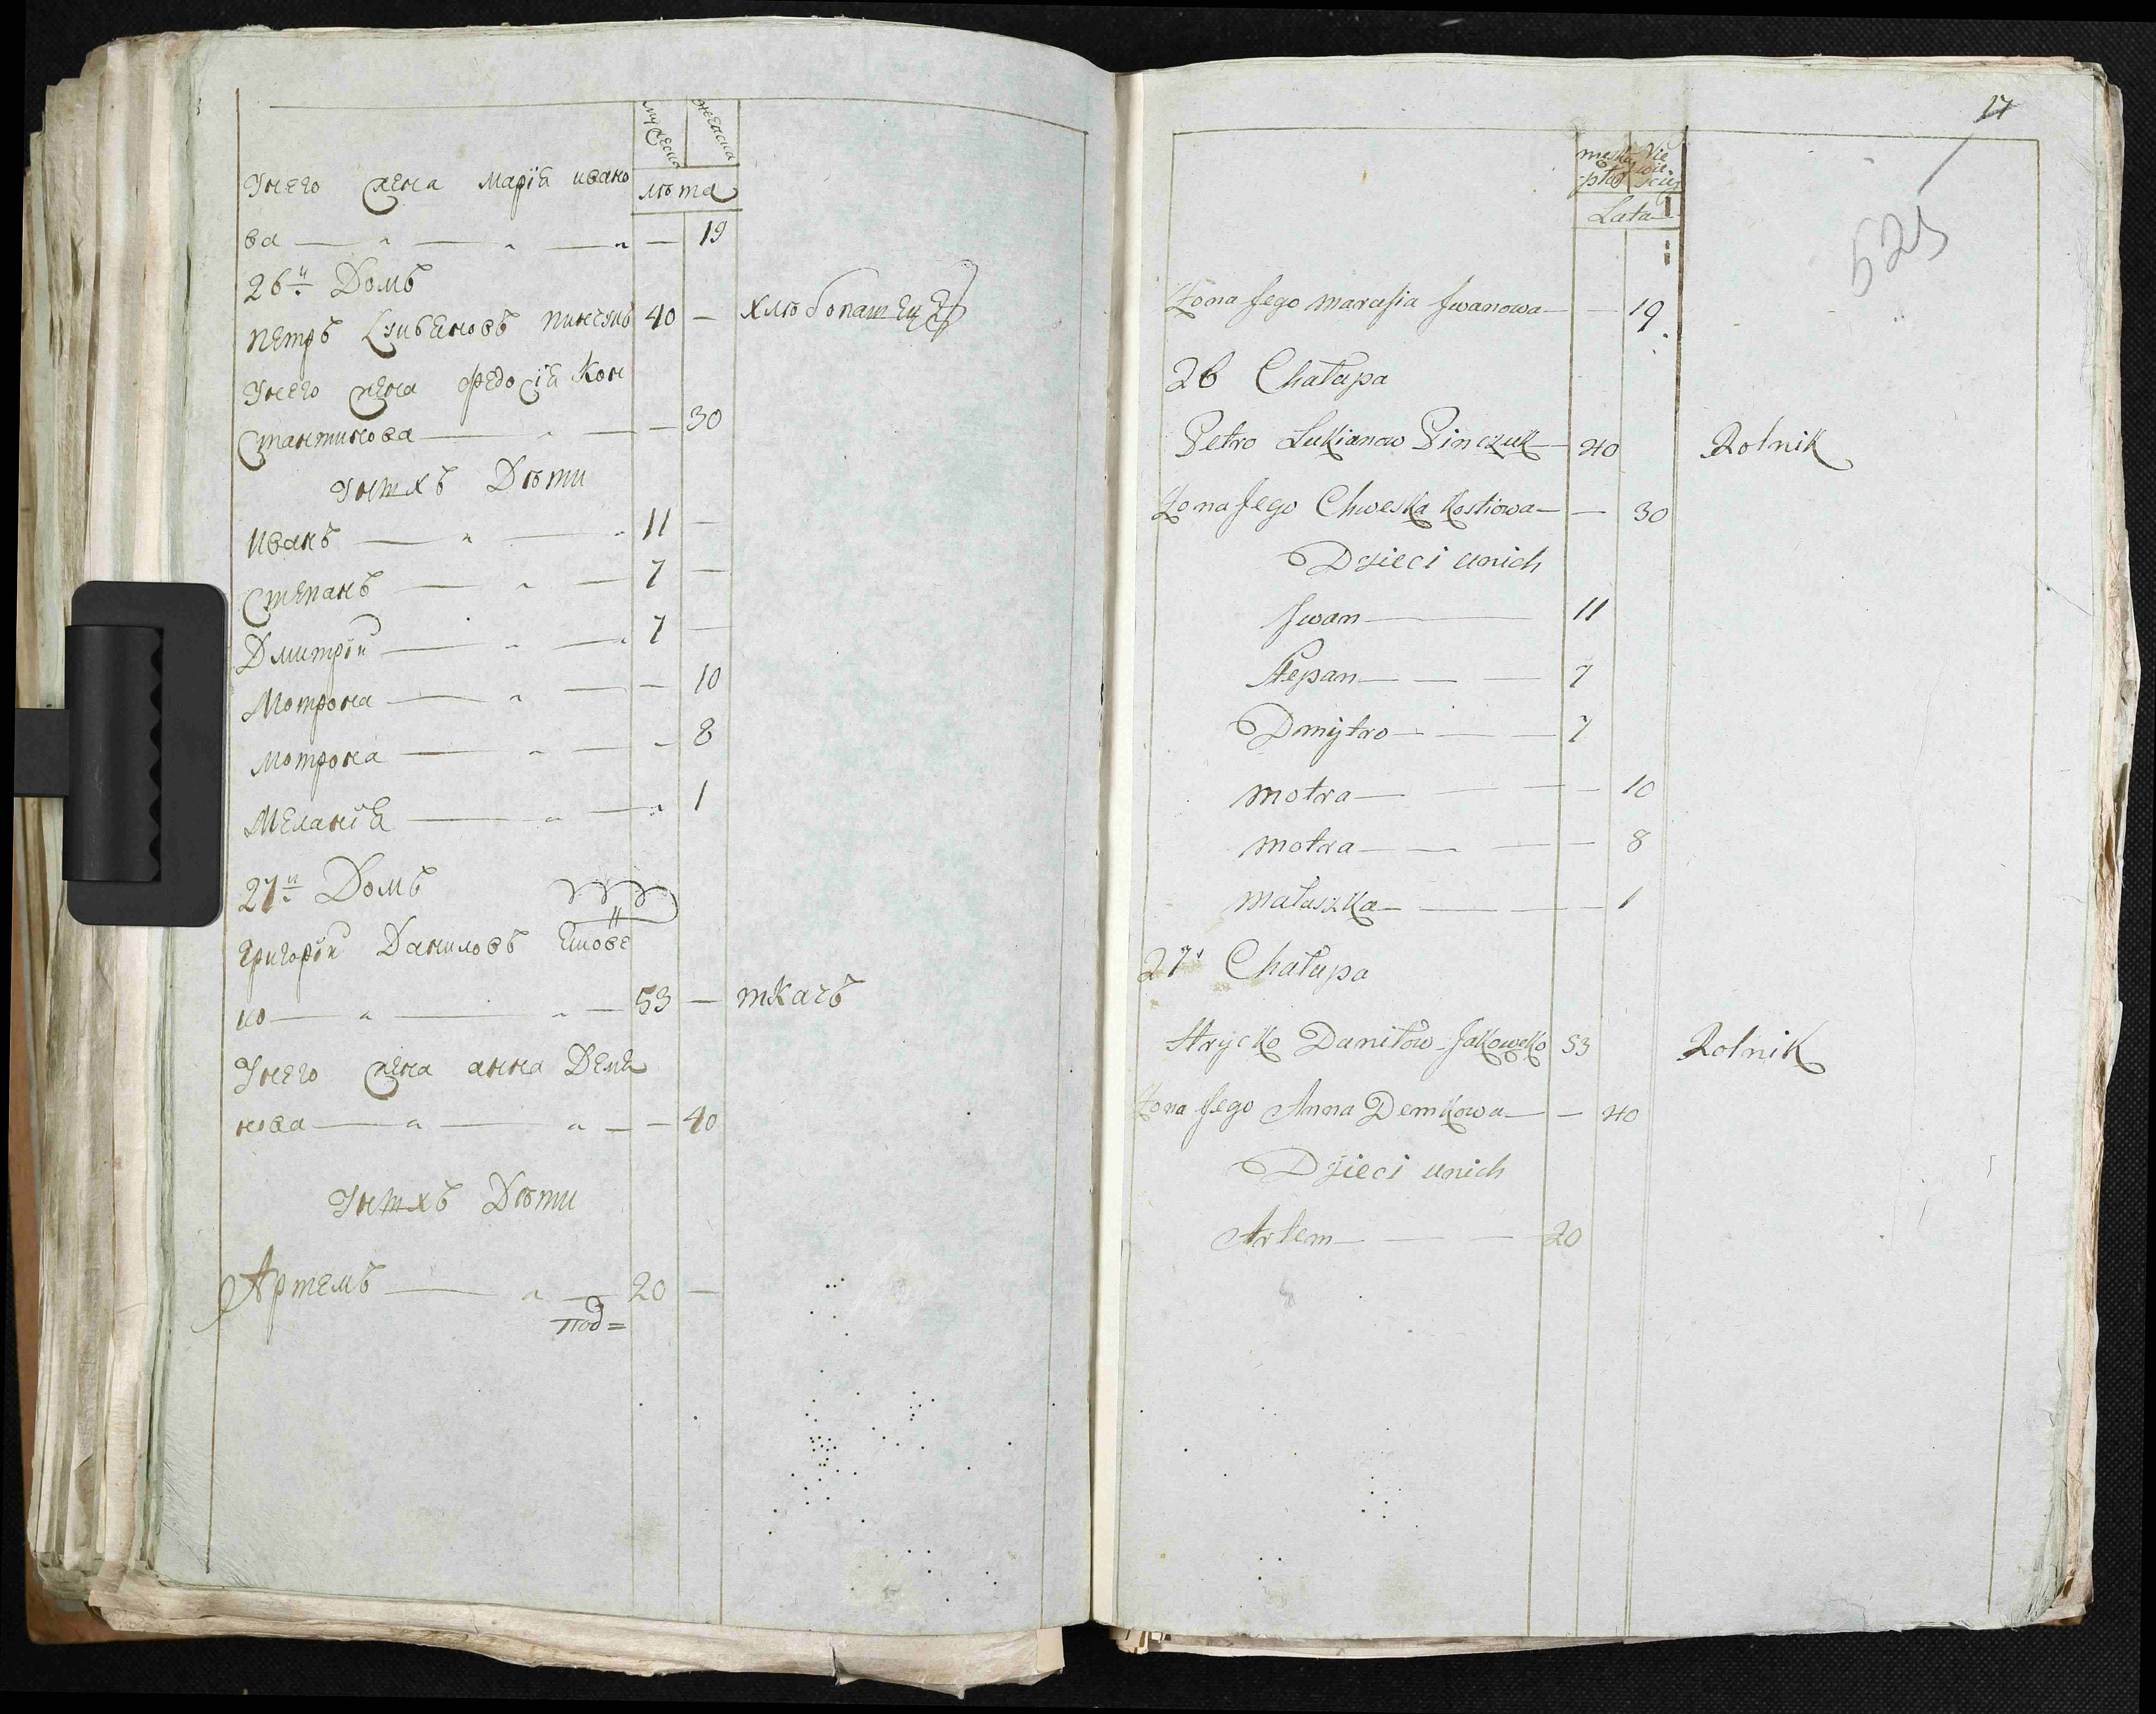 мужеска женска
лѣта
У него жена Марія ивано
ва — „ — „ — „ — 19
26й Домъ
петръ Лукьяновъ пинчукъ 40 — хлѣбопашецъ
У него жена Федосія Кон
стантинова — „ — — 30
У нихъ Дѣти
иванъ — „ — „ 11 —
Степанъ — „ — 7 —
Дмитрій — „ — „ 7 —
Мотрона — „ — — 10
Мотрона — „ — — 8
Меланія — „ — „ 1
27й Домъ
григорій Даниловъ Якове
нко — „ — „ — 53 — ткачъ
У него жена анна Демя
нова — „ — „ — — 40
У нихъ Дѣти
Артемъ — „ — 20 —
под=
17
525
Lata
Żona Jego Marusia Jwanowa — — 19
26 Chałupa
Petro Lukianow Pinczuk — 40 Rolnik
Żona Jego Chweska Kostiowa — — 30
Dzieci unich
Jwan — 11
Stepan — — — 7
Dmytro — — — 7
Motra — — — — 10
Motra — — — — 8
Małaszka — — — — 1
27 Chałupa
Hrycko Daniłow Jakowęko 53 Rolnik
Żona Jego Anna Demkowa — — 40
Dzieci unich
Artem — — — 20